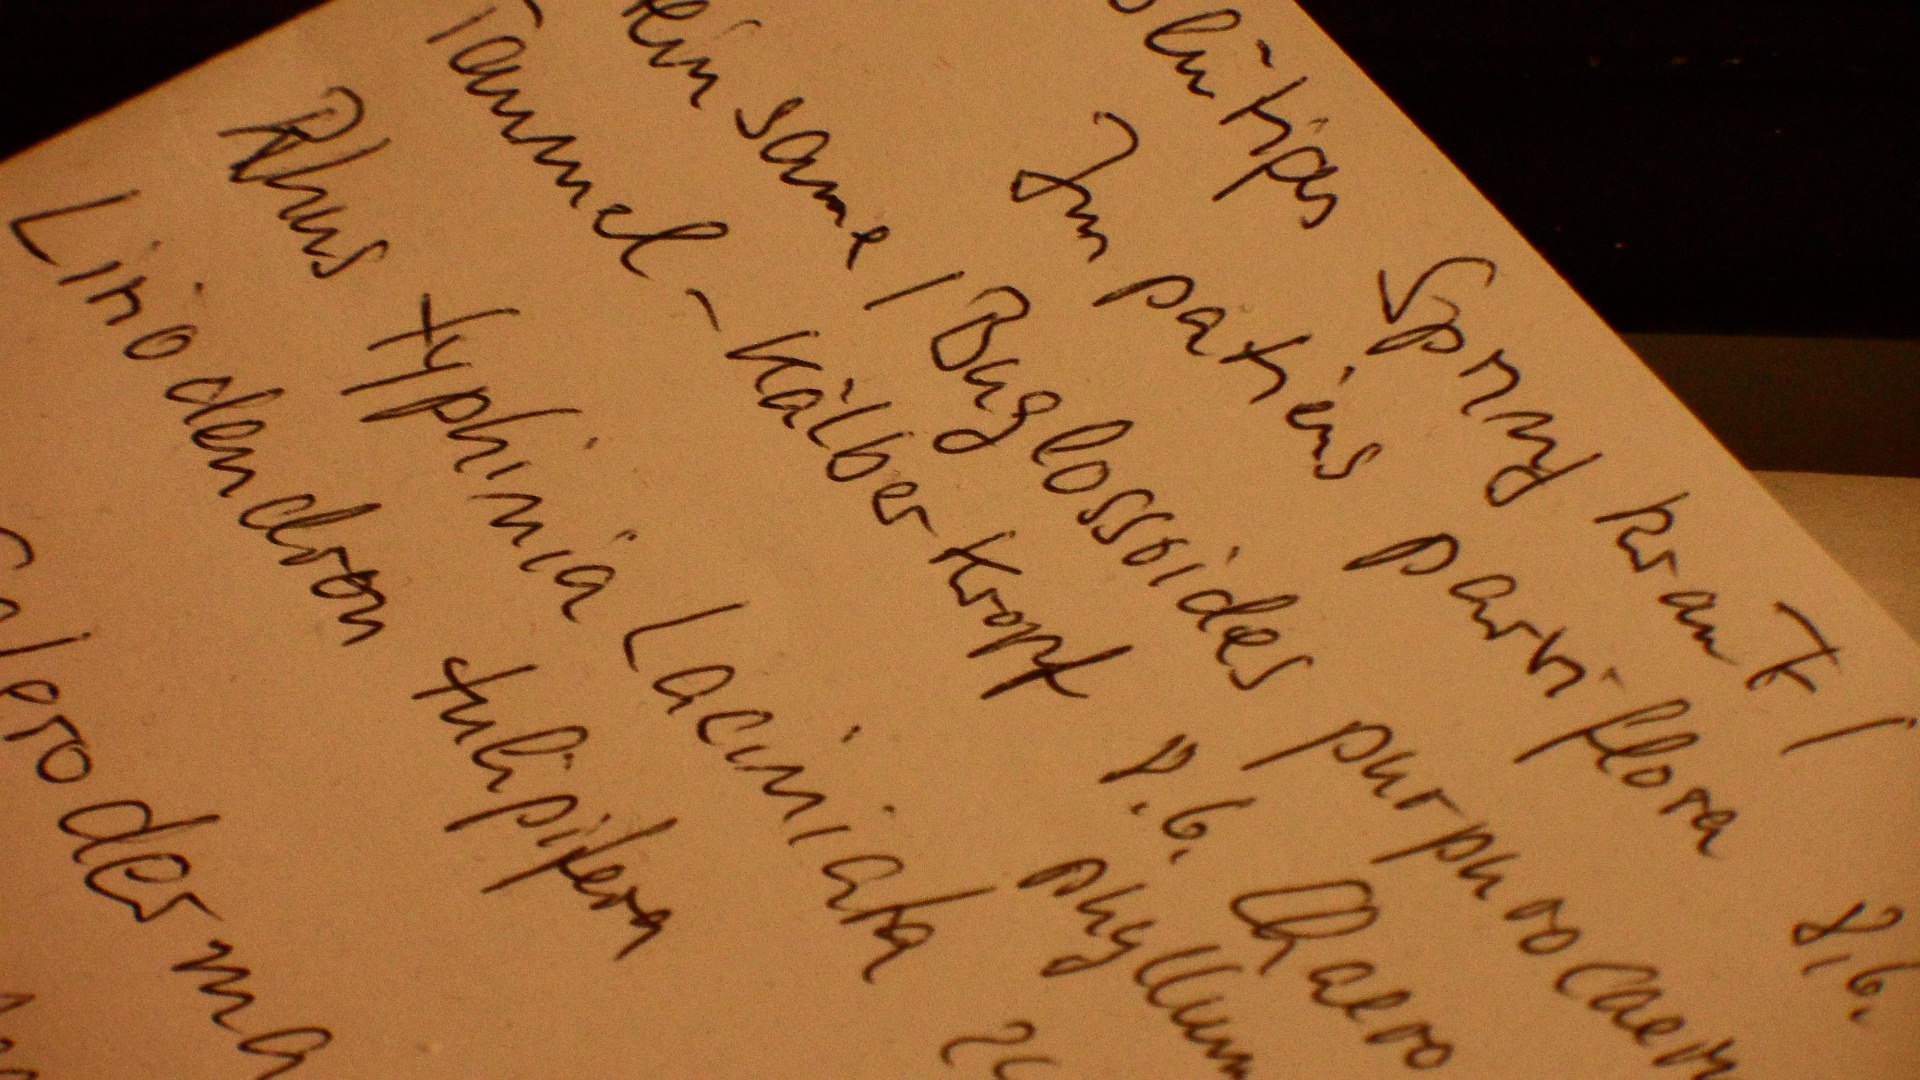 blütiges Springkraut /
Impatiens parviflora 8.6.
einsame / Buglossoides purpurocaeru
Taumel-Kälberkropf 8.6. Chaero
phyllum
Rhus typhina Laciniata
Liriodendron tulipifera
leroderma